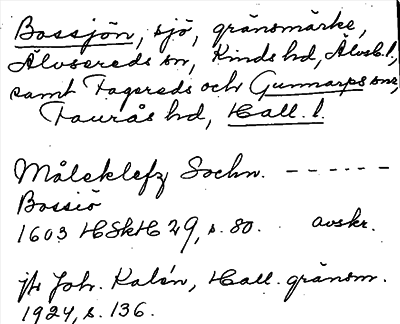 Bossjön, sjö, gränsmärke,
Älvsereds sn, Kinds hd, Älvsb. l.,
samt Fagereds och Gunnarps snr,
Faurås hd, Hall. l.
Målsklefz Sochn. ------
Bossiö
1603 HSkH 29, s. 80. avskr.
jfr Joh. Kalén, Hall. gränsm.
1924, s. 136.